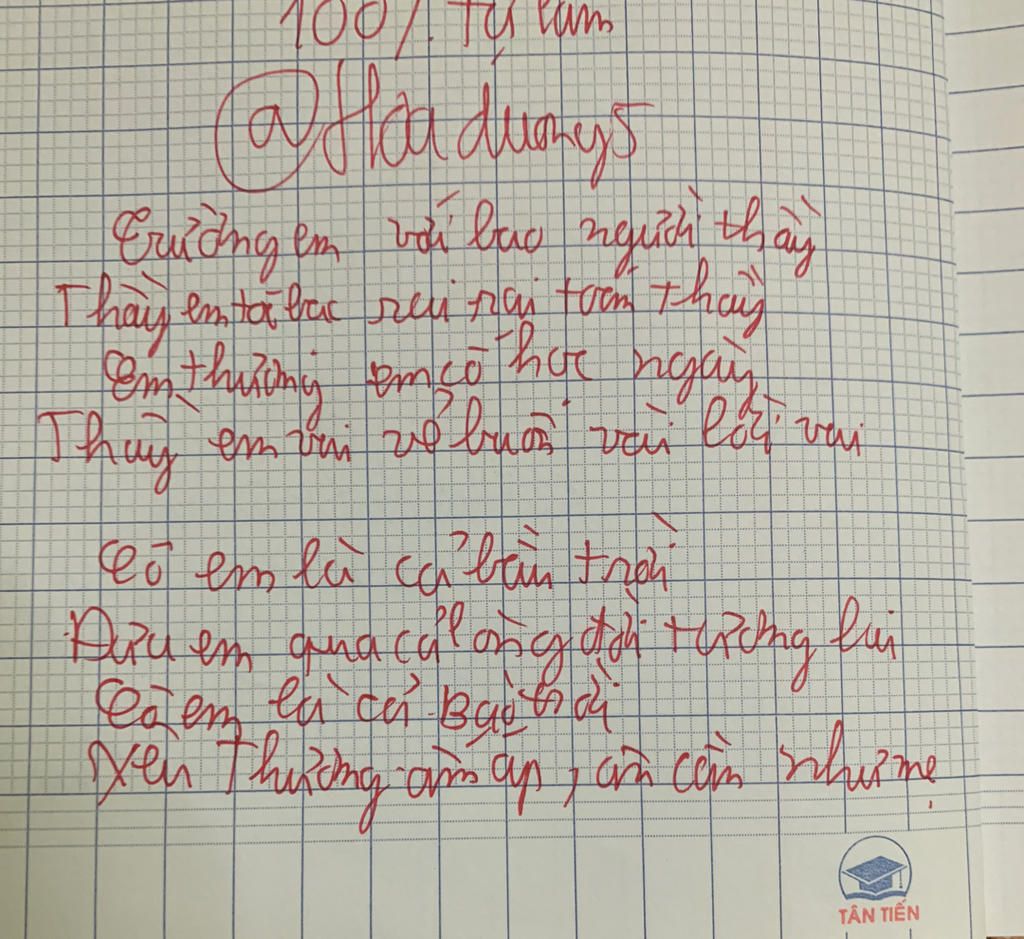 100%. Tự làm
@Hoa dương5
Trường em với bao người thầy
Thầy em tóc bạc thầy
Em thương em cô học ngày
Thầy em vui vẻ buồn vui vai
Cô em là cả bầu trời
Đưa em qua cả đời tương lai
Cô em là cả Bầu trời
Yên Thương ấm áp, ân cần như mẹ
TÂN TIẾN